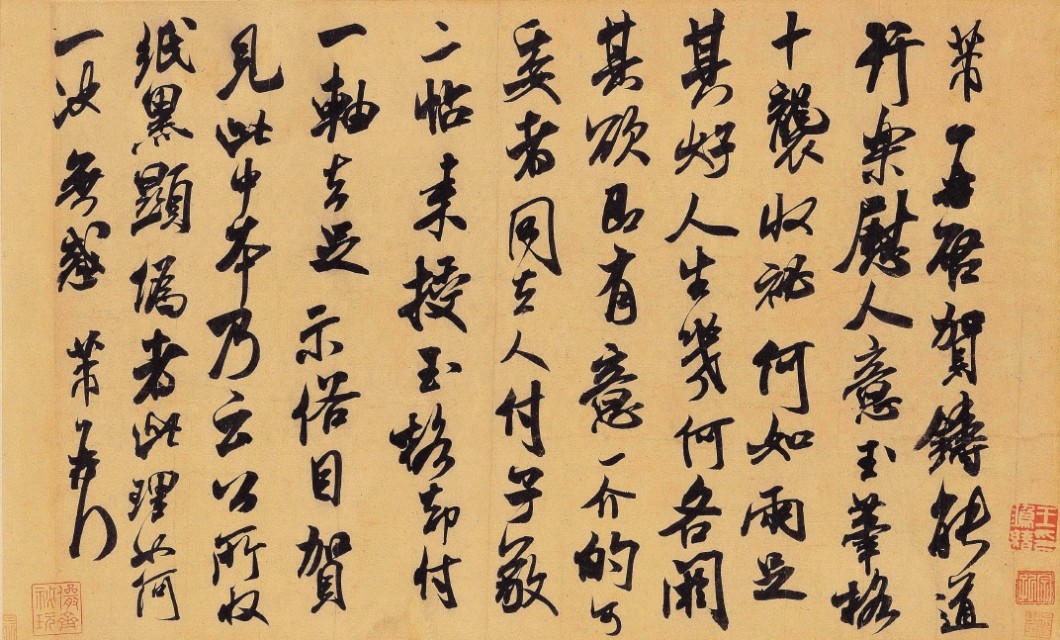 芾再啓賀鑄能道
行樂慰人意玉筆格
十襲收祕何如兩足
其好人生幾何各閼
其欲即有意一介的可
委者同去人付子敬
二帖来授玉格却付
一軸去足示俗目賀
見此中本乃云公所收
紙黑顯偽者此理如何
一决無惑芾再拜